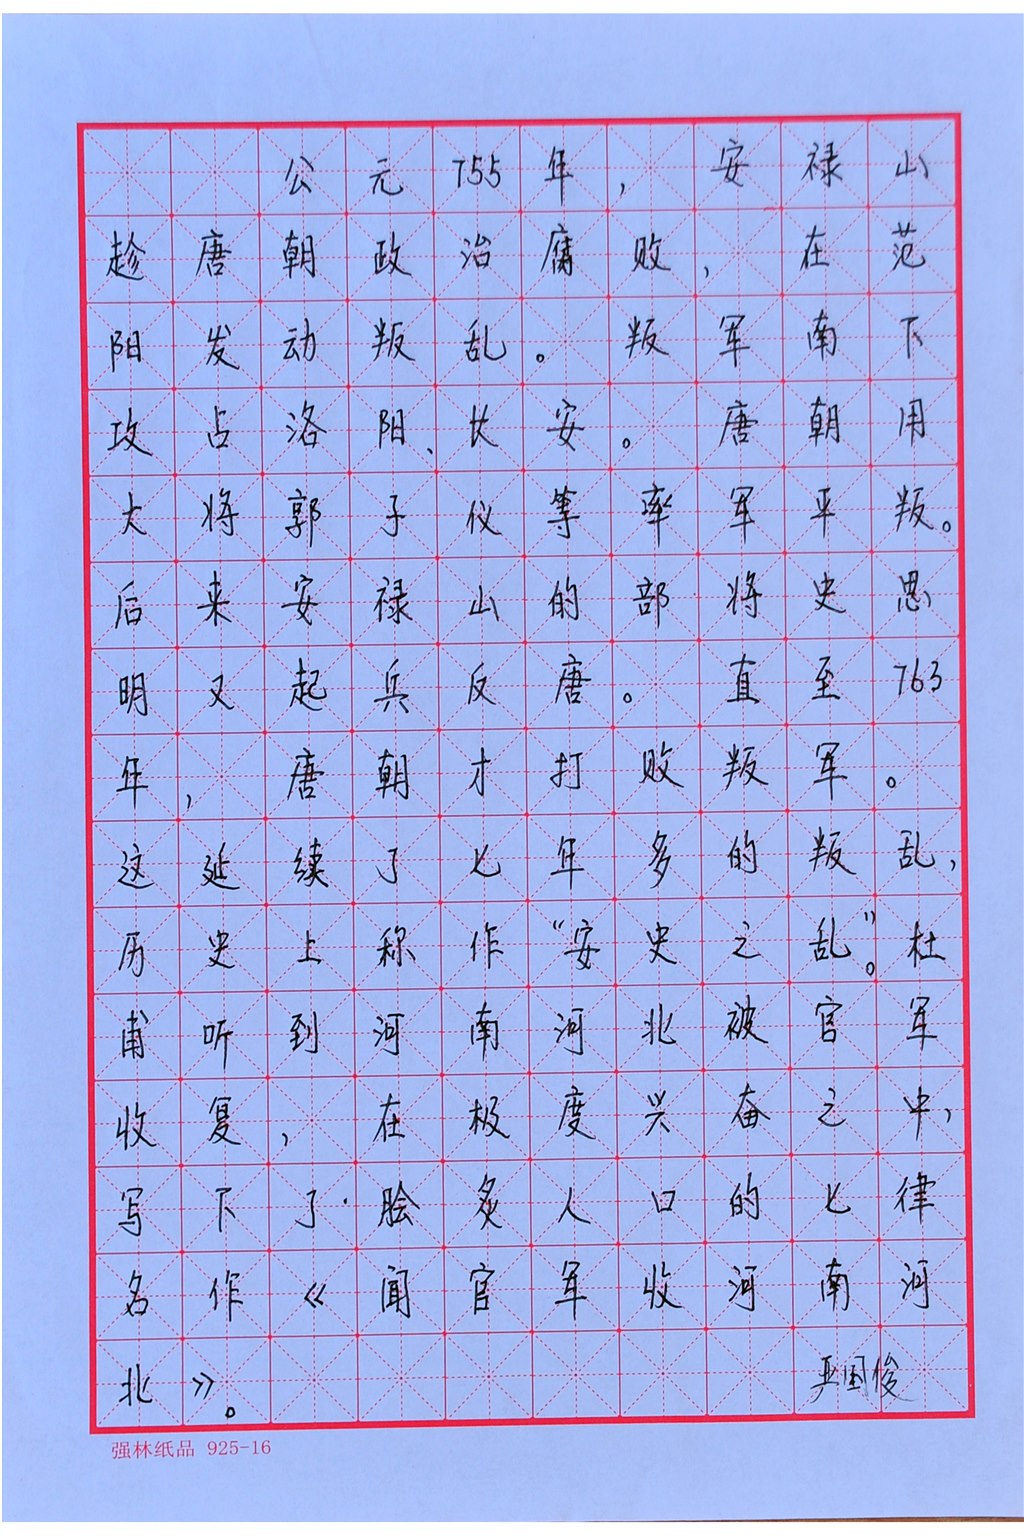 公元755年，安禄山
趁唐朝政治腐败，在范
阳发动叛乱。叛军南下
攻占洛阳、长安。唐朝用
大将郭子仪等率军平叛。
后来安禄山的部将史思
明又起兵反唐。直至763
年，唐朝才打败叛军。
这延续了七年多的叛乱，
历史上称作“安史之乱”。杜
甫听到河南河北被官军
收复，在极度兴奋之中，
写下了脍炙人口的七律
名作《闻官军收河南河
北》。
严国俊
强林纸品 925-16